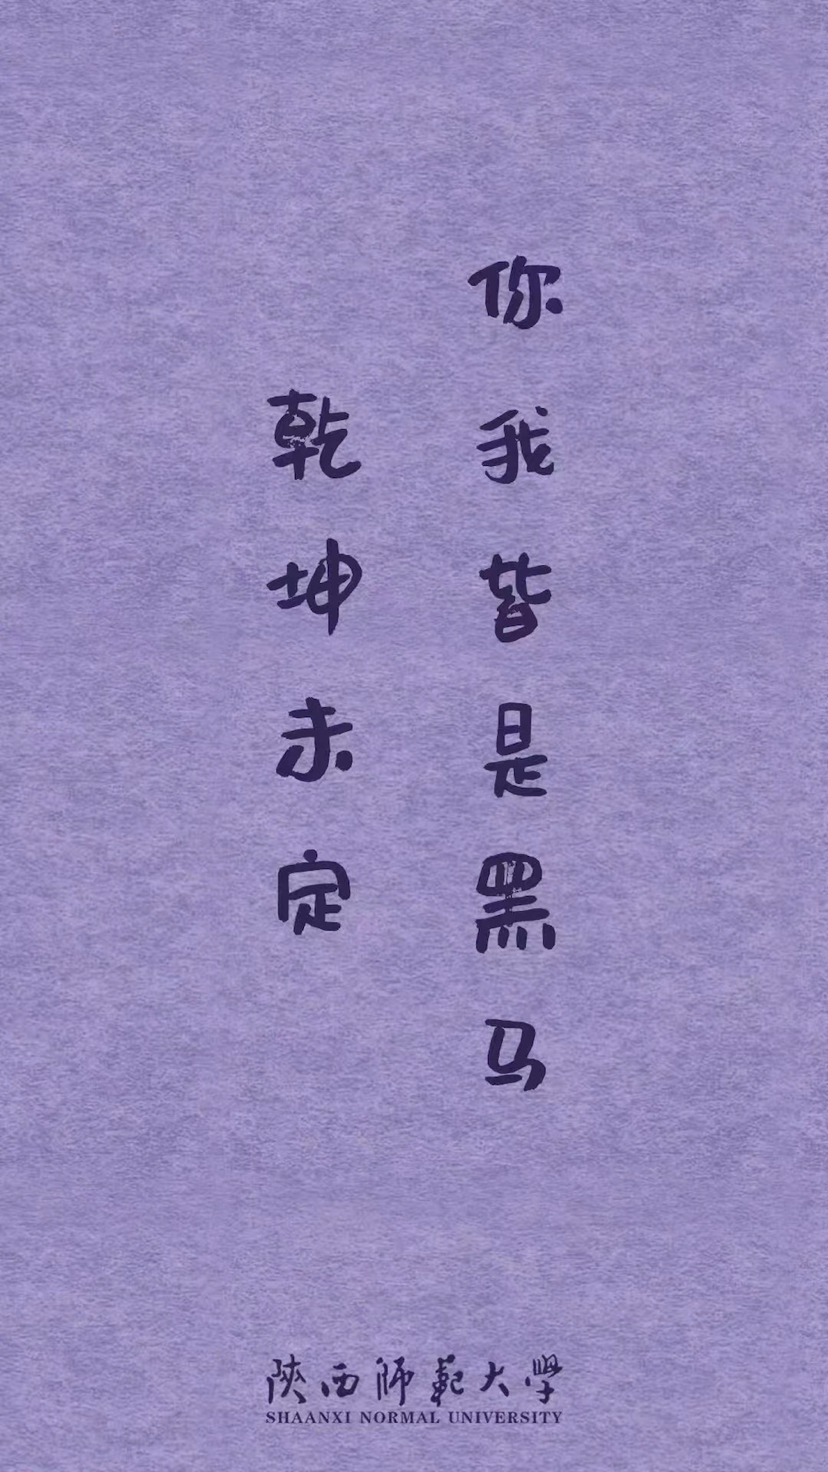 乾坤未定
你我皆是黑马
陝西师範大學
SHAANXI NORMAL UNIVERSITY